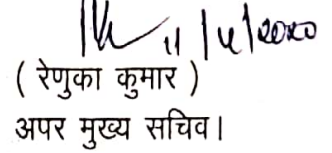 11/4/2020
( रेणुका कुमार )
अपर मुख्य सचिव।